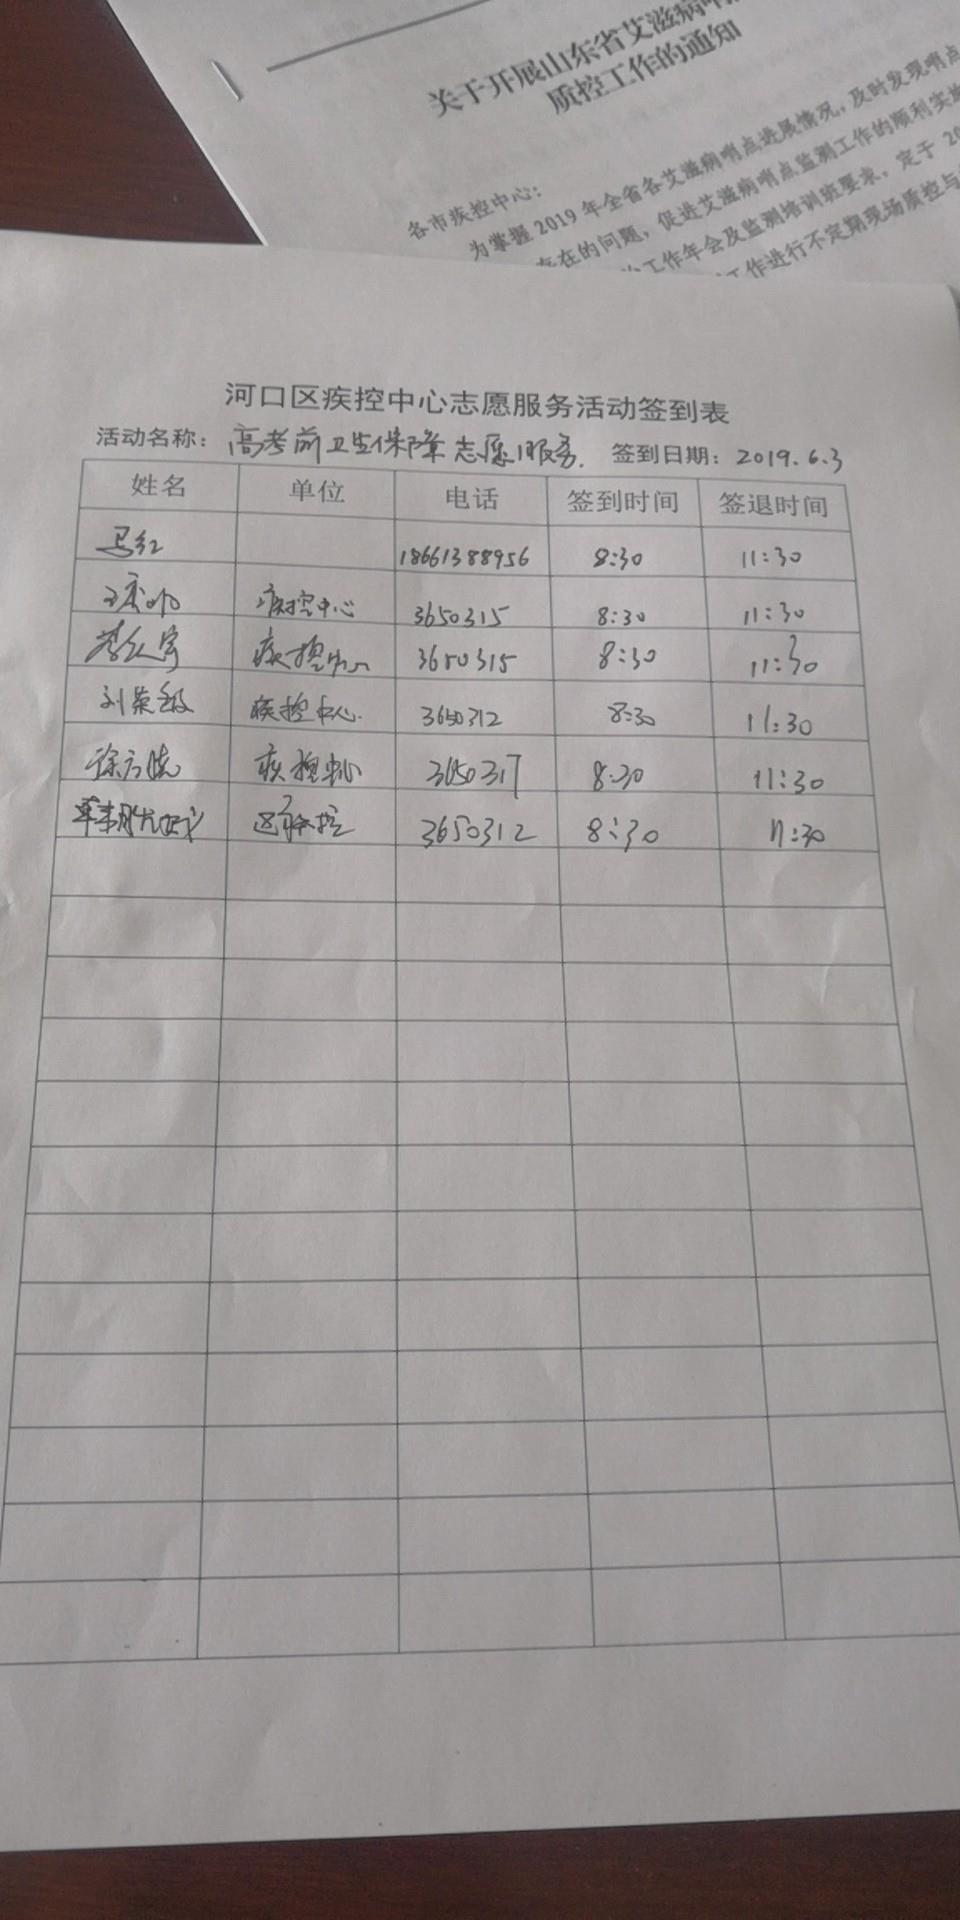 关于开展山东省艾滋病哨
质控工作的通知
各市疾控中心：
为掌握2019年全省各艾滋病哨点进展情况，及时发现哨点
存在的问题，促进艾滋病哨点监测工作的顺利实施
工作年会及监测培训班要求，定于20
工作进行不定期现场质控与
河口区疾控中心志愿服务活动签到表
活动名称：高考前卫生保障志愿服务. 签到日期：2019.6.3
姓名 单位 电话 签到时间 签退时间
马红 18661388956 8:30 11:30
疾控中心 3650315 8:30 11:30
疾控中心 3650315 8:30 11:30
刘荣 疾控中心. 3650312 8:30 11:30
徐方 疾控中心 3650317 8:30 11:30
区疾控 3650312 8:30 11:30